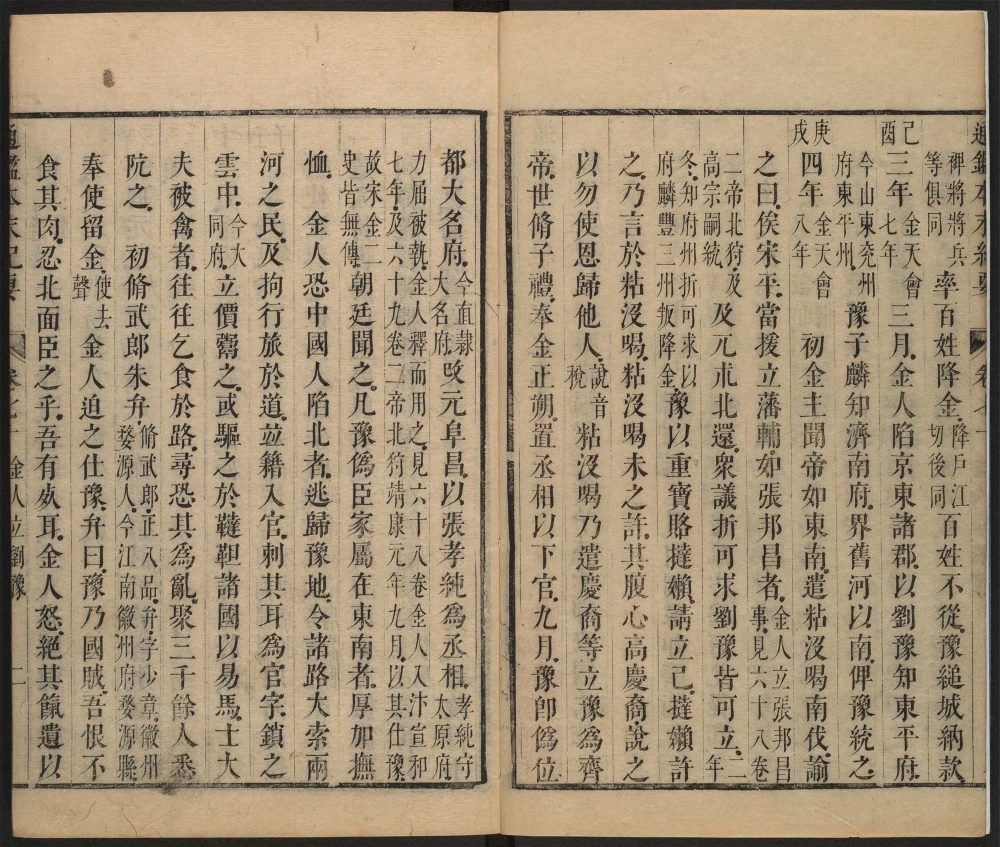 通鑑本末紀要
卷七十
裨將將兵等俱同率百姓降金降戶江切後同百姓不從豫縋城納款
己酉三年金天會七年三月金人陷京東諸郡以劉豫知東平府
今山東兖州府東平州豫子麟知濟南府界舊河以南俾豫統之
庚戌四年金天會八年初金主聞帝如東南遣粘沒喝南伐諭
之曰俟宋平當援立藩輔如張邦昌者金人立張邦昌事見六十八卷
二帝北狩及高宗嗣統及元朮北還衆議折可求劉豫皆可立二年
冬知府州折可求以府麟豐三州叛降金豫以重寶賂撻懶請立己撻懶許
之乃言於粘沒喝粘沒喝未之許其腹心高慶裔說之
以勿使恩歸他人說音稅粘沒喝乃遣慶裔等立豫爲齊
帝世脩子禮奉金正朔置丞相以下官九月豫卽僞位
都大名府今直隸大名府改元阜昌以張孝純爲丞相孝純守太原府
力屈被執金人釋而用之見六十八卷金人入汴宣和
七年及六十九卷二帝北狩靖康元年九月以其仕豫
故宋金二史皆無傳朝廷聞之凡豫僞臣家屬在東南者厚加撫
恤金人恐中國人陷北者逃歸豫地令諸路大索兩
河之民及拘行旅於道並籍入官刺其耳爲官字鎖之
雲中今大同府立價鬻之或驅之於韃靼諸國以易馬士大
夫被禽者往往乞食於路尋恐其爲亂聚三千餘人悉
阬之初脩武郎朱弁脩武郎正八品弁字少章徽州婺源人今江南徽州府婺源縣
奉使留金使去聲金人迫之仕豫弁曰豫乃國賊吾恨不
食其肉忍北面臣之乎吾有死耳金人怒絕其餼遺以
通鑑本末紀要
卷七十
金人立劉豫
二